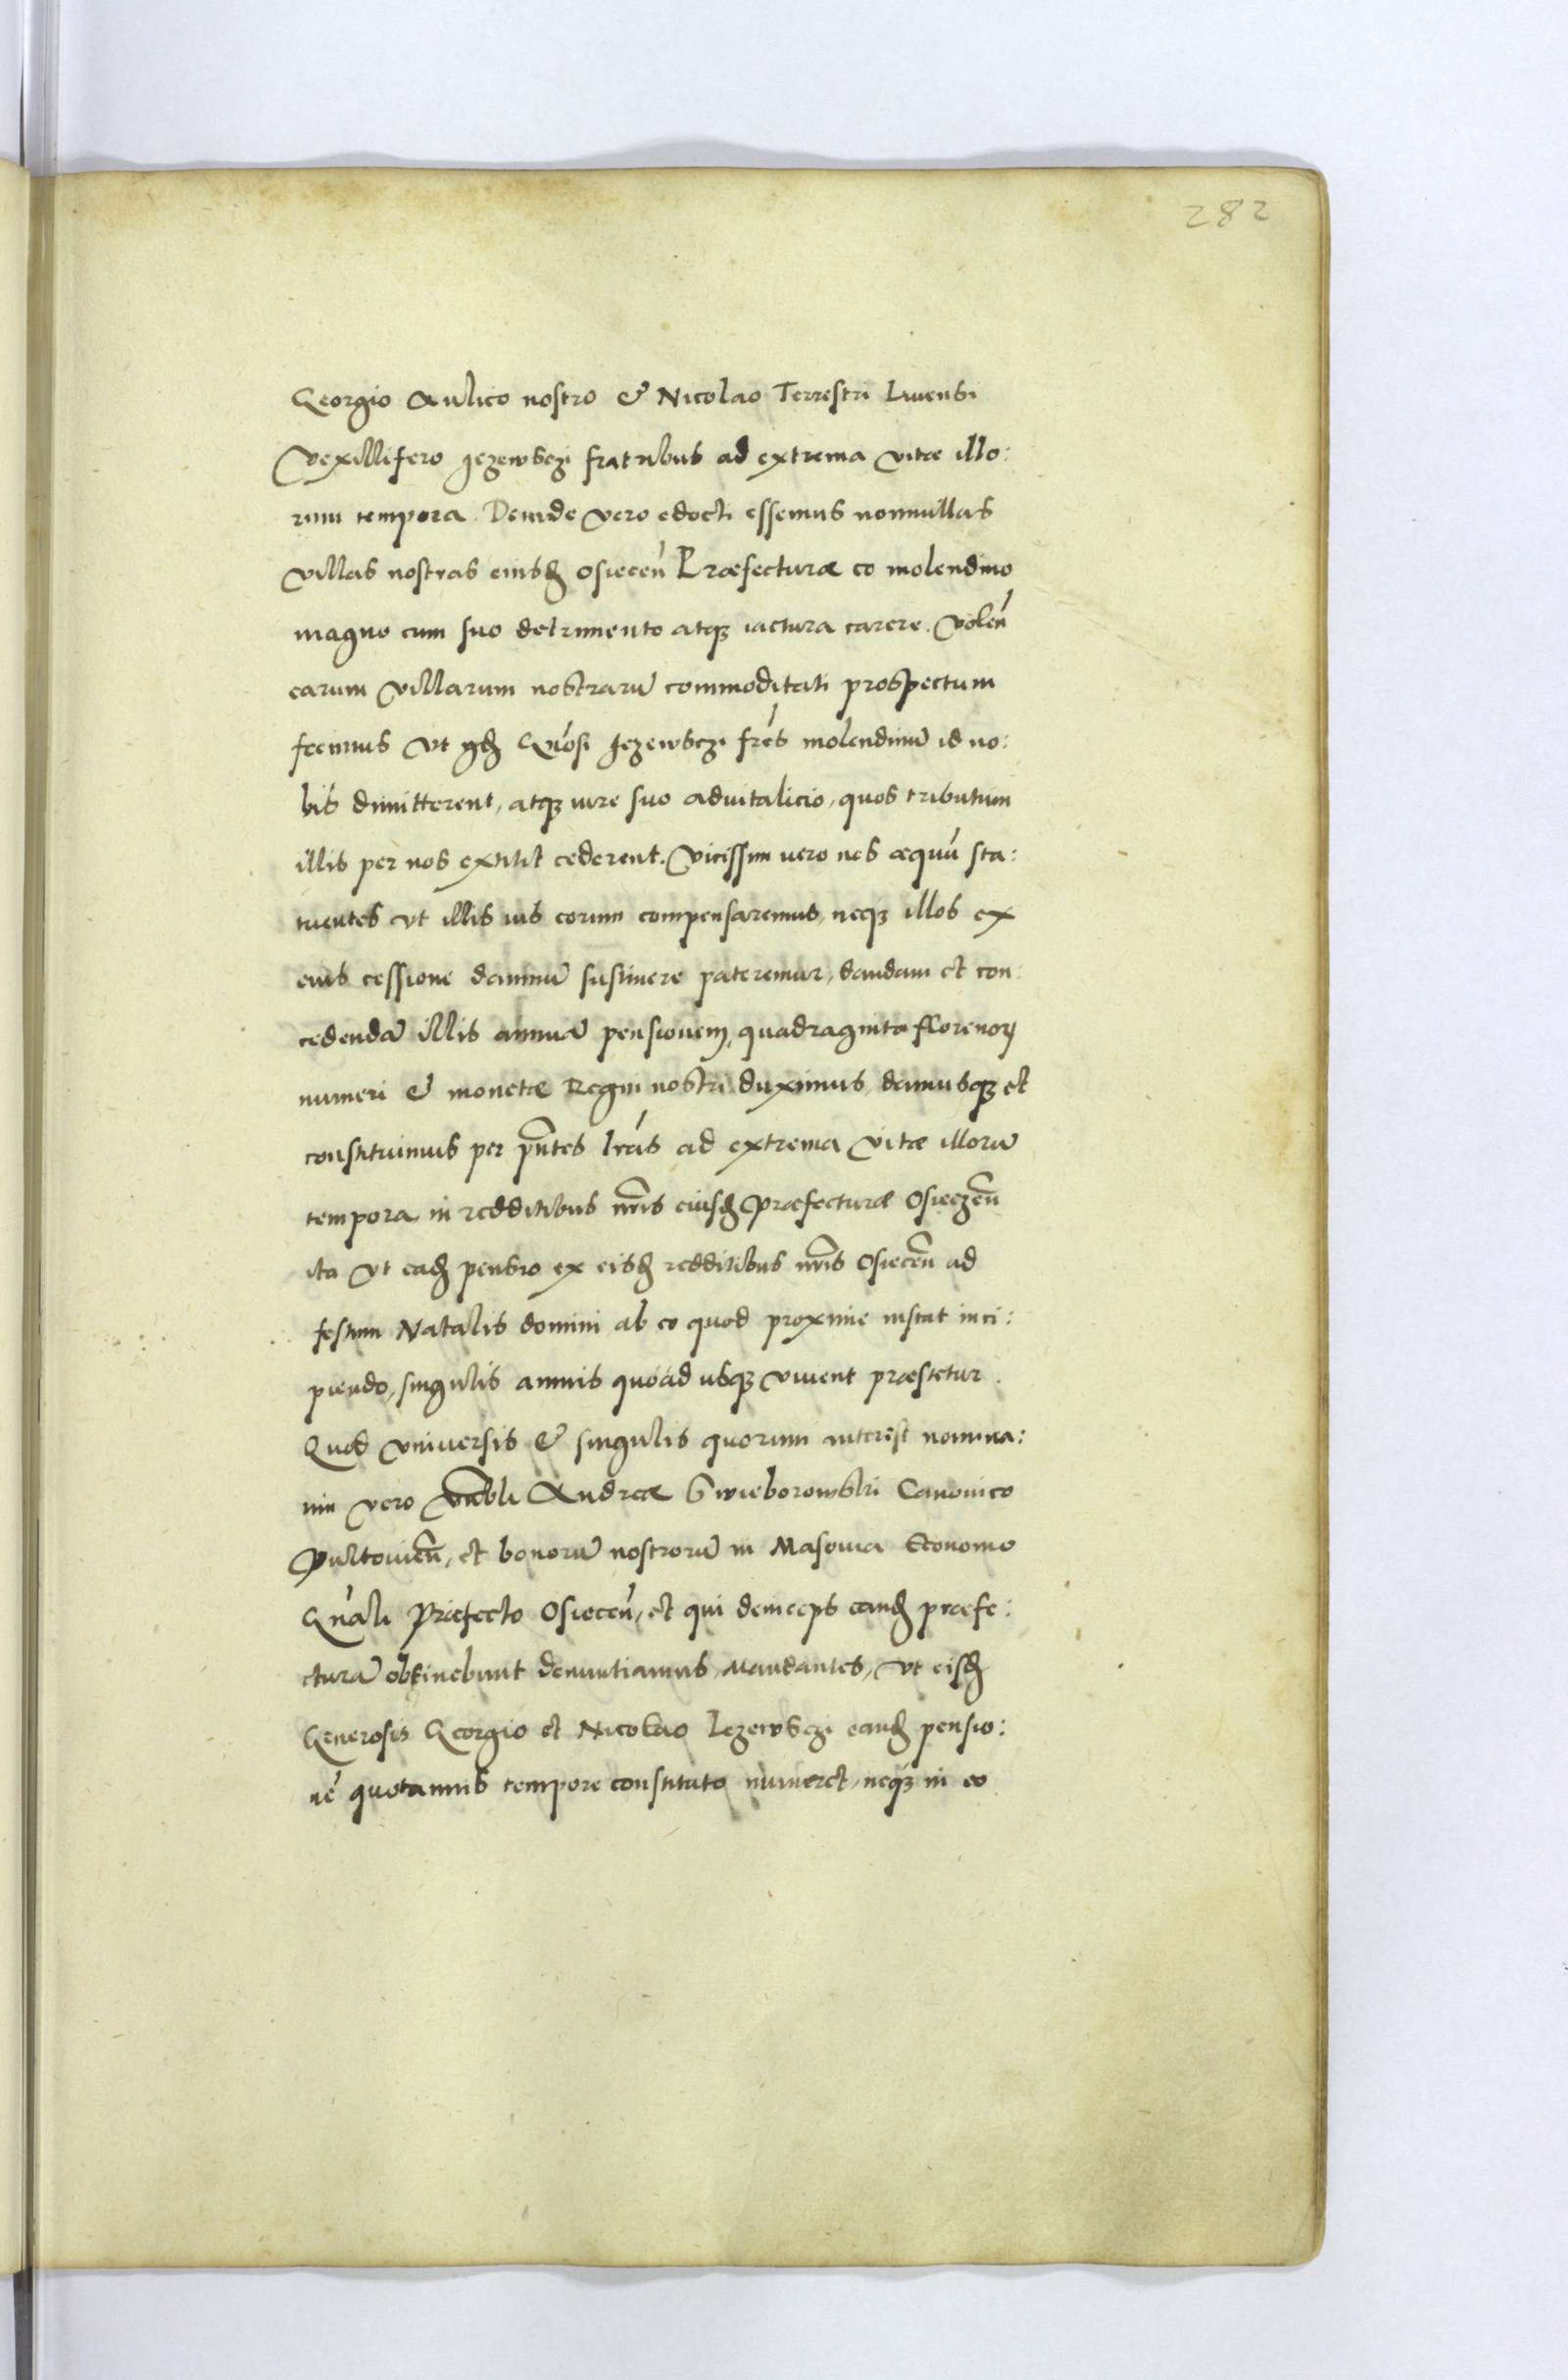 282
Georgio Aulico nostro & Nicolao Terrestri Liuensi
Vexillifero Jezewsczi fratribus ad extrema vitae illo:
rum tempora. Deinde vero edocti essemus nonnullas
villas nostras eiusd Osiecen̄ Praefecturae eo molendino
magno cum suo detrimento atq iactura carere. Volen̄
earum villarum nostrarū commoditati prospectum
fecimus vt ijd Gn̄osi Jezewsczi frēs molendinū id no:
bis dimitterent, atq iure suo aduitalicio, quos tributum
illis per nos extitit cederent. Vicissim uero nos aequū sta:
tuentes vt illis ius eorum compensaremus, neq illos ex
eius cessione damnū sustinere pateremur, dandam et con:
cedendā illis annuā pensionem, quadraginta florenorꝝ
numeri & monetae Regni nostri duximus, damusq et
constituimus per pn̄tes lrās ad extrema vitae illorū
tempora in redditibus nr̄is eiusd Praefecturae Osieczen̄
ita vt ead pensio ex eisd redditibus nr̄is Osiecen̄ ad
festum Natalis domini ab eo quod proxime instat inci:
piendo, singulis annis quoad usq viuent praestetur.
Quod vniuersis & singulis quorum interest nomina:
tim vero vn̄bli Andreae Swieborowski Canonico
Pultouien̄, et bonorū nostrorū in Masouia Economo
Gn̄ali Praefecto Osiecen̄, et qui deinceps eand praefe:
cturā obtinebunt denuntiamus, Mandantes, vt eisd
Generosis Georgio et Nicolao Iezewsczi eand pensio:
nē quotannis tempore constituto numeret, neq in eo